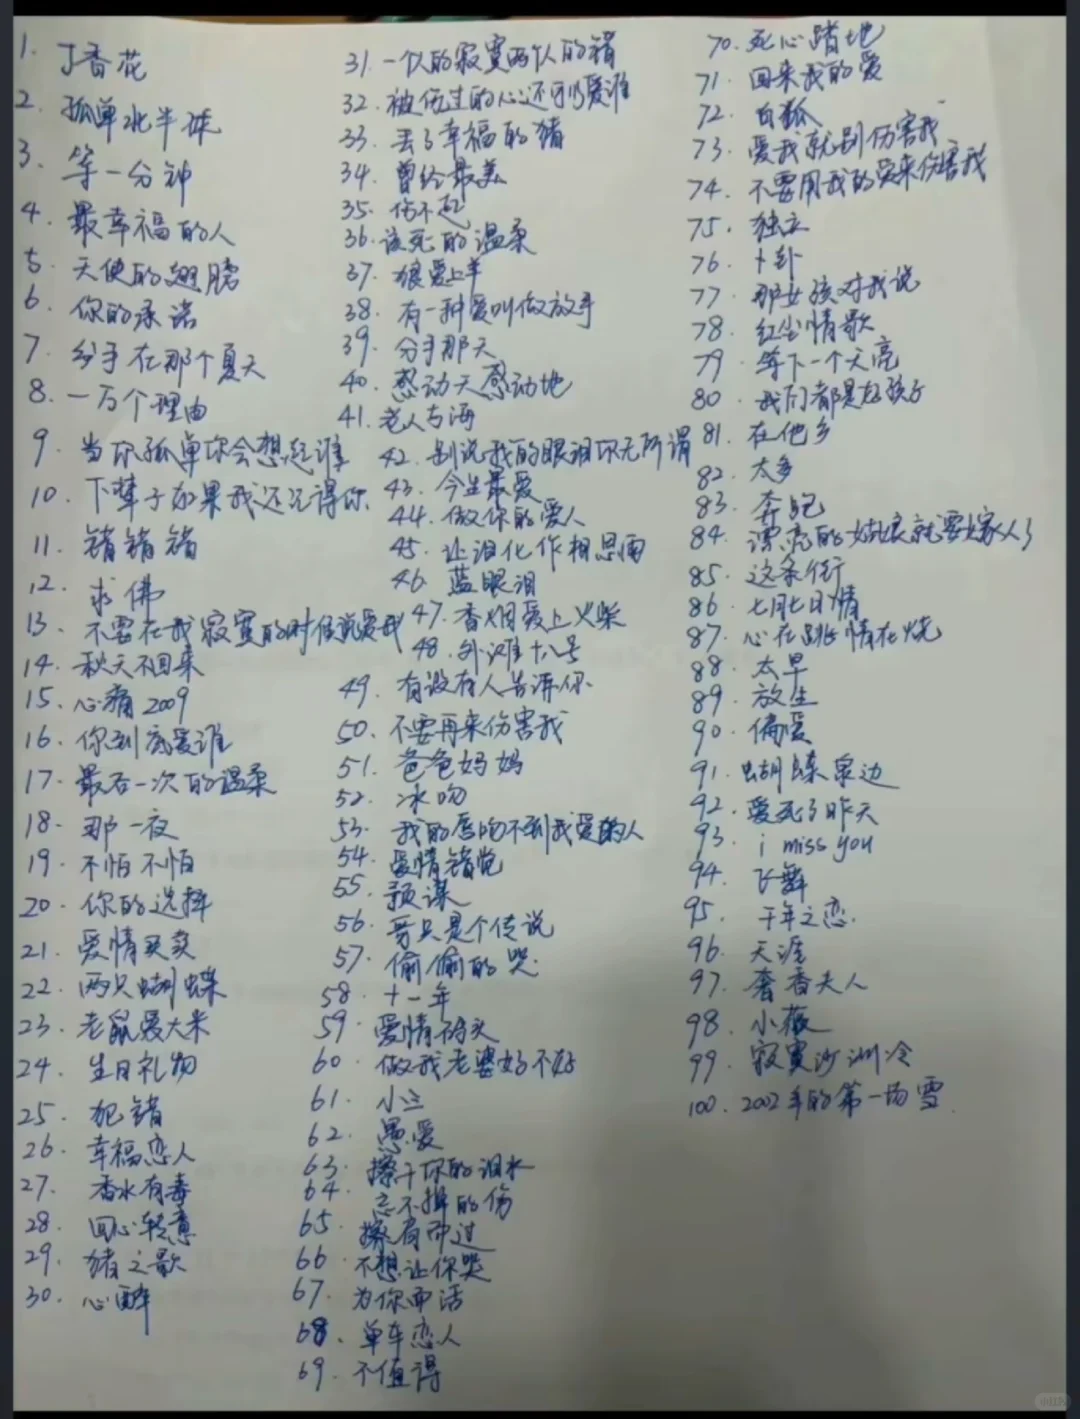 1. 丁香花
2. 孤单北半球
3. 等一分钟
4. 最幸福的人
5. 天使的翅膀
6. 你的承诺
7. 分手在那个夏天
8. 一万个理由
9. 当你孤单你会想起谁
10. 下辈子如果我还记得你
11. 错错错
12. 求佛
13. 不要在我寂寞的时候说爱我
14. 秋天不回来
15. 心痛2009
16. 你到底爱谁
17. 最后一次的温柔
18. 那一夜
19. 不怕不怕
20. 你的选择
21. 爱情买卖
22. 两只蝴蝶
23. 老鼠爱大米
24. 生日礼物
25. 犯错
26. 幸福恋人
27. 香水有毒
28. 回心转意
29. 猪之歌
30. 心醉
31. 一个人的寂寞两个人的错
32. 被伤过的心还可以爱谁
33. 丢了幸福的猪
34. 曾经最美
35. 伤不起
36. 该死的温柔
37. 狼爱上羊
38. 有一种爱叫做放手
39. 分手那天
40. 感动天感动地
41. 老人与海
42. 别说我的眼泪你无所谓
43. 今生最爱
44. 做你的爱人
45. 让泪化作相思雨
46. 蓝眼泪
47. 香烟爱上火柴
48. 外滩十八号
49. 有没有人告诉你
50. 不要再来伤害我
51. 爸爸妈妈
52. 冰吻
53. 我的唇吻不到我爱的人
54. 爱情错觉
55. 预谋
56. 哥只是个传说
57. 偷偷的哭
58. 十一年
59. 爱情码头
60. 做我老婆好不好
61. 小三
62. 愚爱
63. 擦干你的泪水
64. 忘不掉的伤
65. 擦肩而过
66. 不想让你哭
67. 为你而活
68. 单车恋人
69. 不值得
70. 死心踏地
71. 回来我的爱
72. 白狐
73. 爱我就别伤害我
74. 不要用我的爱来伤害我
75. 独立
76. 卜卦
77. 那女孩对我说
78. 红尘情歌
79. 等下一个天亮
80. 我们都是好孩子
81. 在他乡
82. 太多
83. 奔跑
84. 漂亮的姑娘就要嫁人了
85. 这条街
86. 七月七日情
87. 心在跳情在烧
88. 太早
89. 放生
90. 偏爱
91. 蝴蝶泉边
92. 爱死了昨天
93. i miss you
94. 飞舞
95. 千年之恋
96. 天涯
97. 奢香夫人
98. 小薇
99. 寂寞沙洲冷
100. 2002年的第一场雪